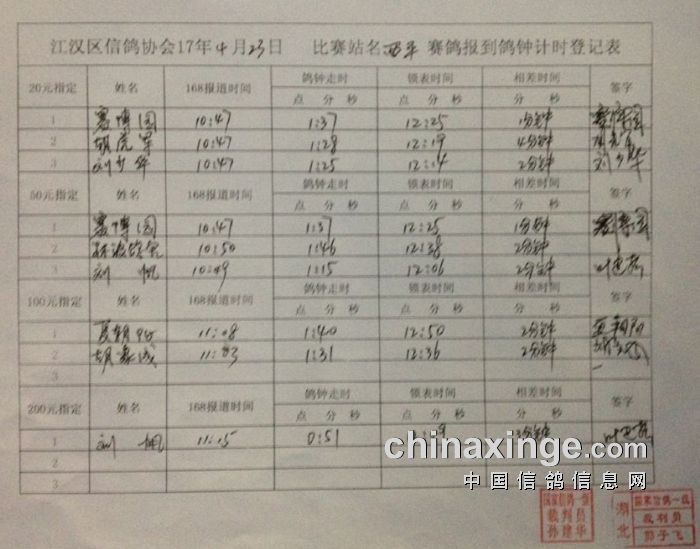 江汉区信鸽协会17年4月23日 比赛站名西平 赛鸽报到鸽钟计时登记表
20元指定 姓名 168报道时间 鸽钟走时 锁表时间 相差时间 签字
点 分 秒 点 分 秒 点 分 秒
1 赛博园 10:47 1:37 12:25 1分钟 赛博园
2 胡虎军 10:47 1:28 12:19 4分钟
3 刘少华 10:47 1:25 12:14 2分钟 刘少华
50元指定 姓名 168报道时间 鸽钟走时 锁表时间 相差时间 签字
点 分 秒 点 分 秒 点 分 秒
1 赛博园 10:47 1:37 12:25 1分钟 赛博园
2 10:50 1:46 12:38 2分钟
3 刘帆 10:49 1:15 12:06 2分钟
100元指定 姓名 168报道时间 鸽钟走时 锁表时间 相差时间 签字
点 分 秒 点 分 秒 点 分 秒
1 11:08 1:40 12:50 2分钟
2 胡家成 11:03 1:31 12:36 2分钟
3
200元指定 姓名 168报道时间 鸽钟走时 锁表时间 相差时间 签字
点 分 秒 点 分 秒 点 分 秒
1 刘帆 11:15 0:51 9 分钟
2
3
chinaxinge.com
中国信鸽信息网
国家信鸽一级
裁判员
孙建华
湖北
国家信鸽一级
裁判员
郭子飞